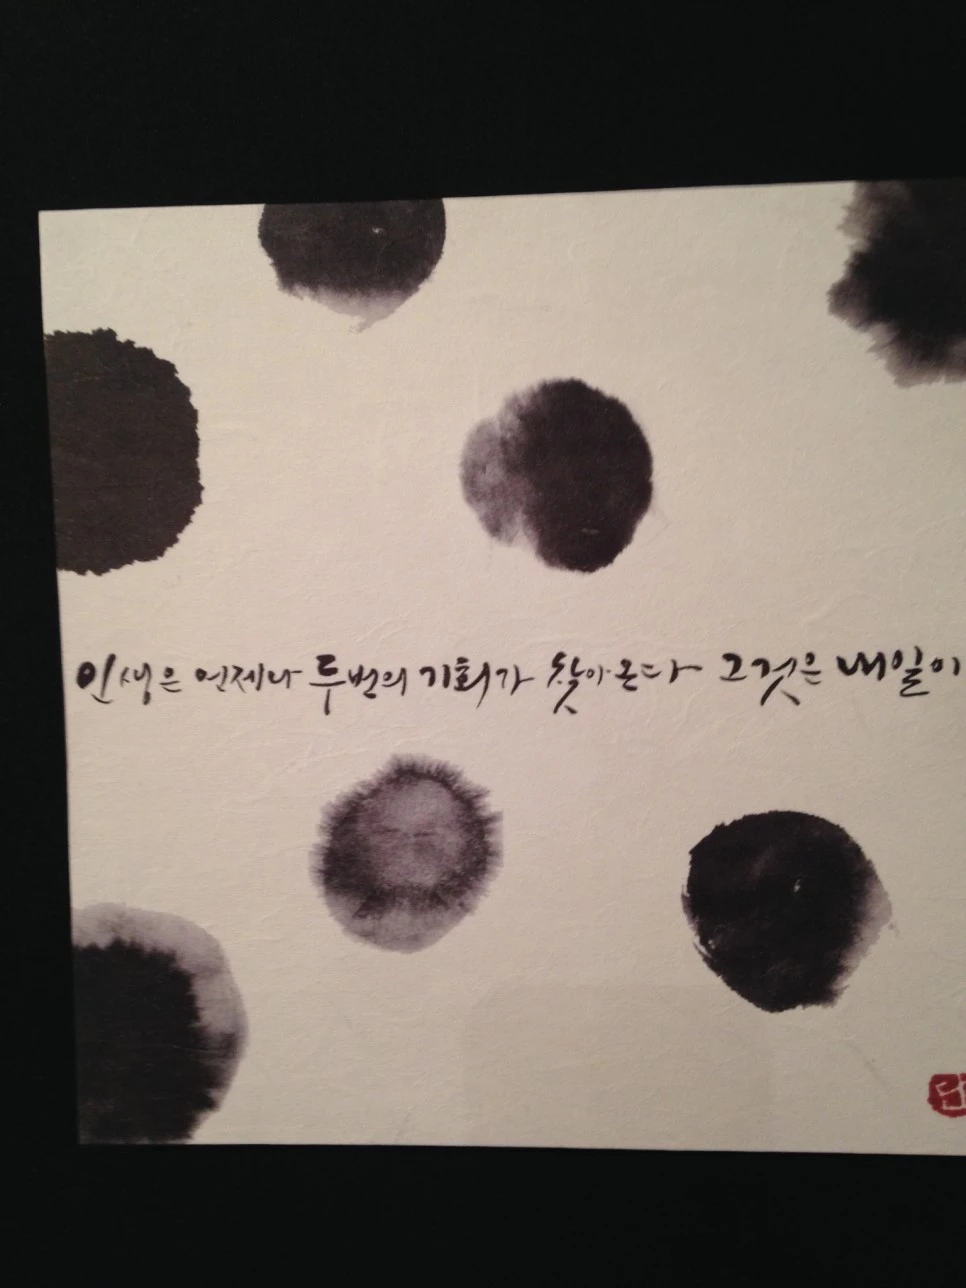 인생은 언제나 두번의 기회가 찾아온다 그것은 내일이